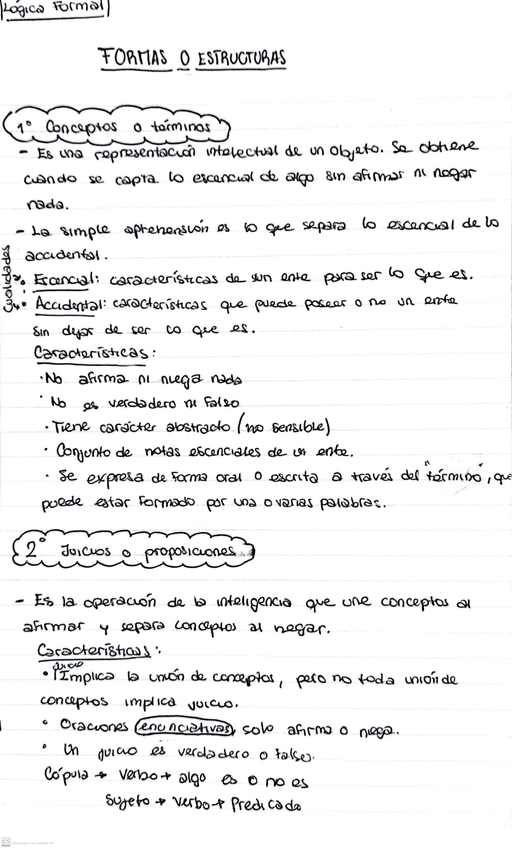 Lógica Formal
FORMAS O ESTRUCTURAS
1° Conceptos o términos
- Es una representación intelectual de un objeto. Se obtiene
cuando se capta lo escencial de algo sin afirmar ni negar
nada.
- La simple aprehensión es lo que separa lo escencial de lo
accidental.
cualidades
Escencial: características de un ente para ser lo que es.
Accidental: características que puede poseer o no un ente
sin dejar de ser lo que es.
Características:
· No afirma ni niega nada
· No es verdadero ni falso
· Tiene carácter abstracto (no sensible)
· Conjunto de notas escenciales de un ente.
· Se expresa de forma oral o escrita a través del "término", que
puede estar formado por una o varias palabras.
2° Juicios o proposiciones
- Es la operación de la inteligencia que une conceptos al
afirmar y separa conceptos al negar.
Características:
juicio
· Implica la unión de conceptos, pero no toda unión de
conceptos implica juicio.
· Oraciones enunciativas, solo afirma o niega.
· Un juicio es verdadero o falso.
Cópula → verbo → algo es o no es
Sujeto + verbo + Predicado